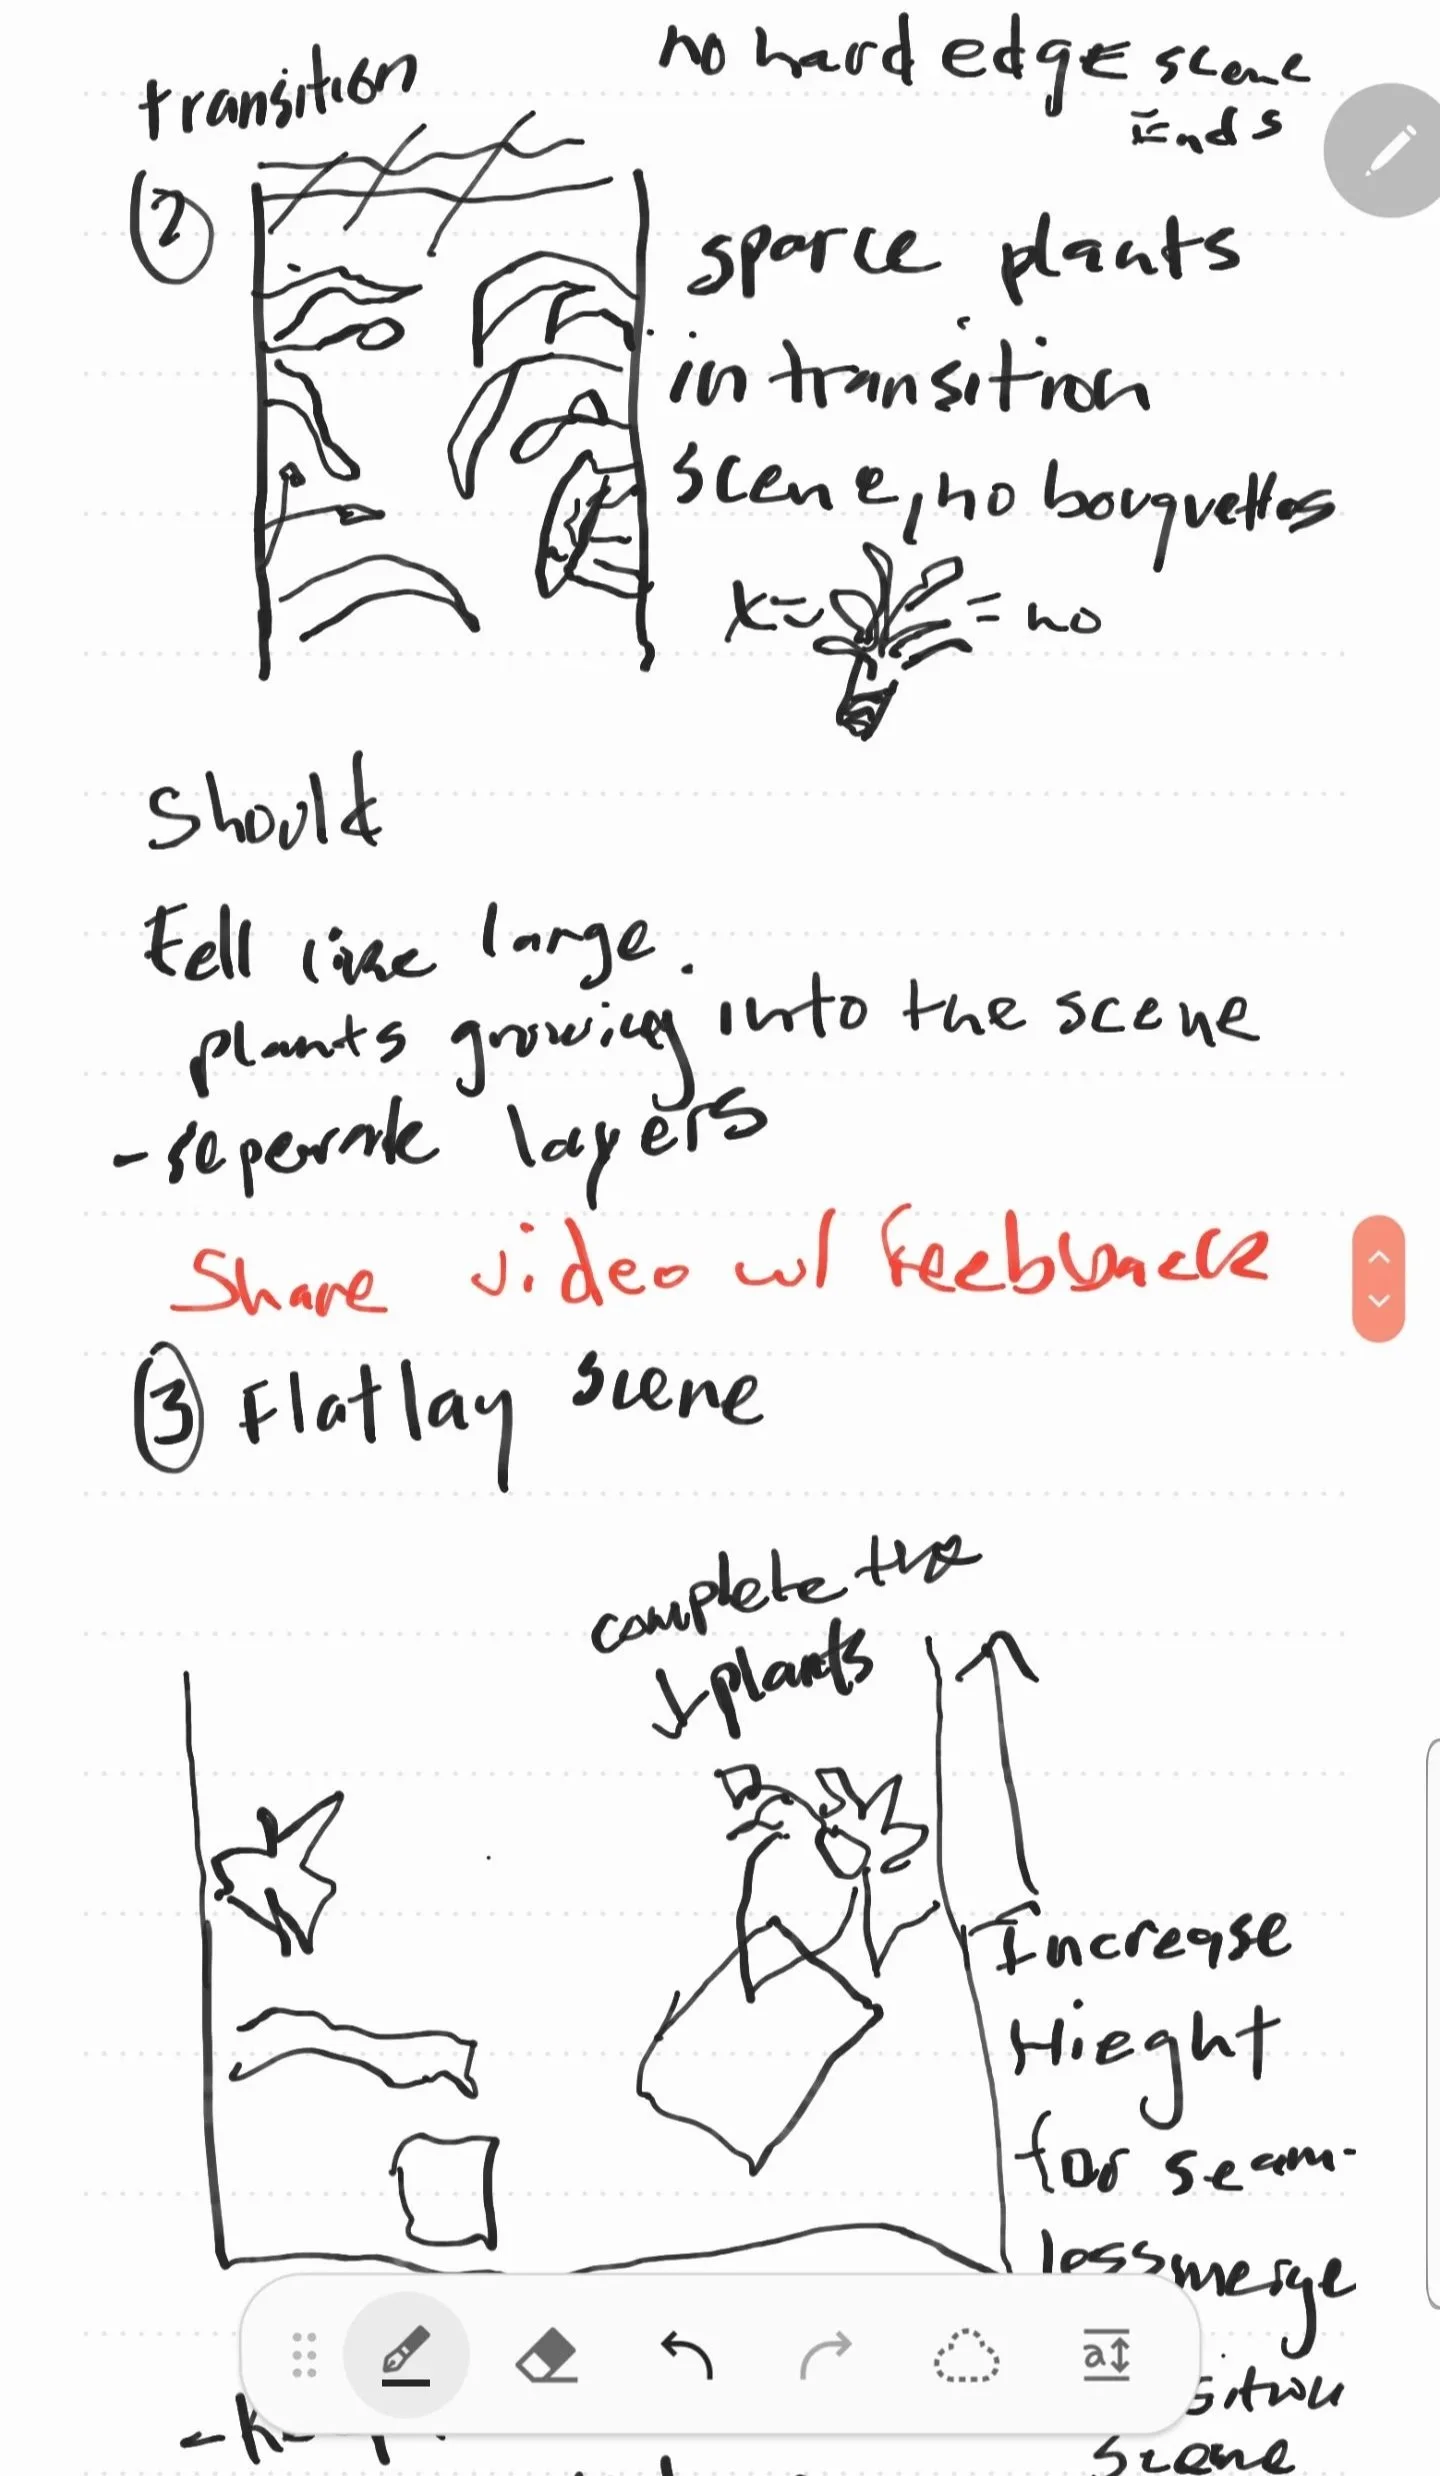 transition
no hard edge scene
Ends
2
sparce plants
in transition
scene, no bouquettes
x =
= no
Should
Fell like large
plants growing into the scene
- seperate layers
Share video w/ Feebback
3 Flatlay scene
complete the
plants
Increase
Hieght
for seam-
less merge
scene